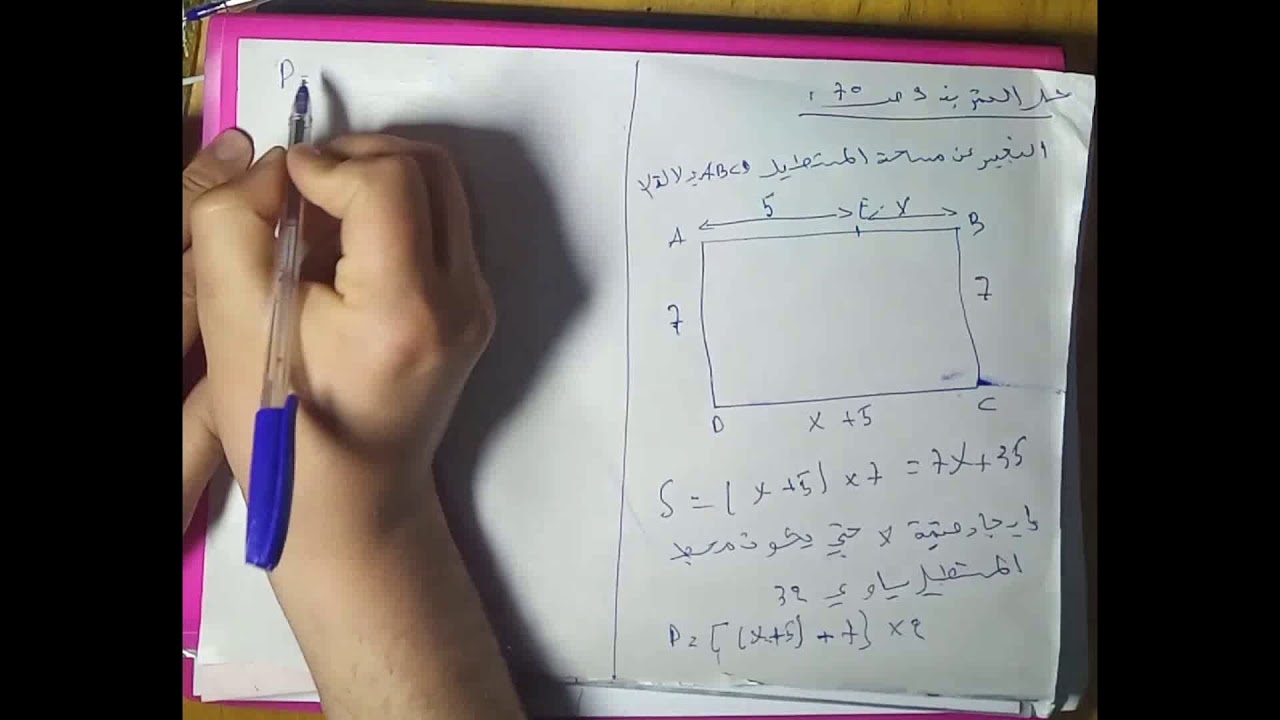 حل التمرين 9 ص 70 :
التعبير عن مساحة المستطيل ABCD بدلالة x
5 E x
A B
7 7
D C
x + 5
S = (x + 5) × 7 = 7x + 35
إيجاد قيمة x حتى يكون محيط
المستطيل يساوي 32
P = [(x+5) + 7] × 2
P =